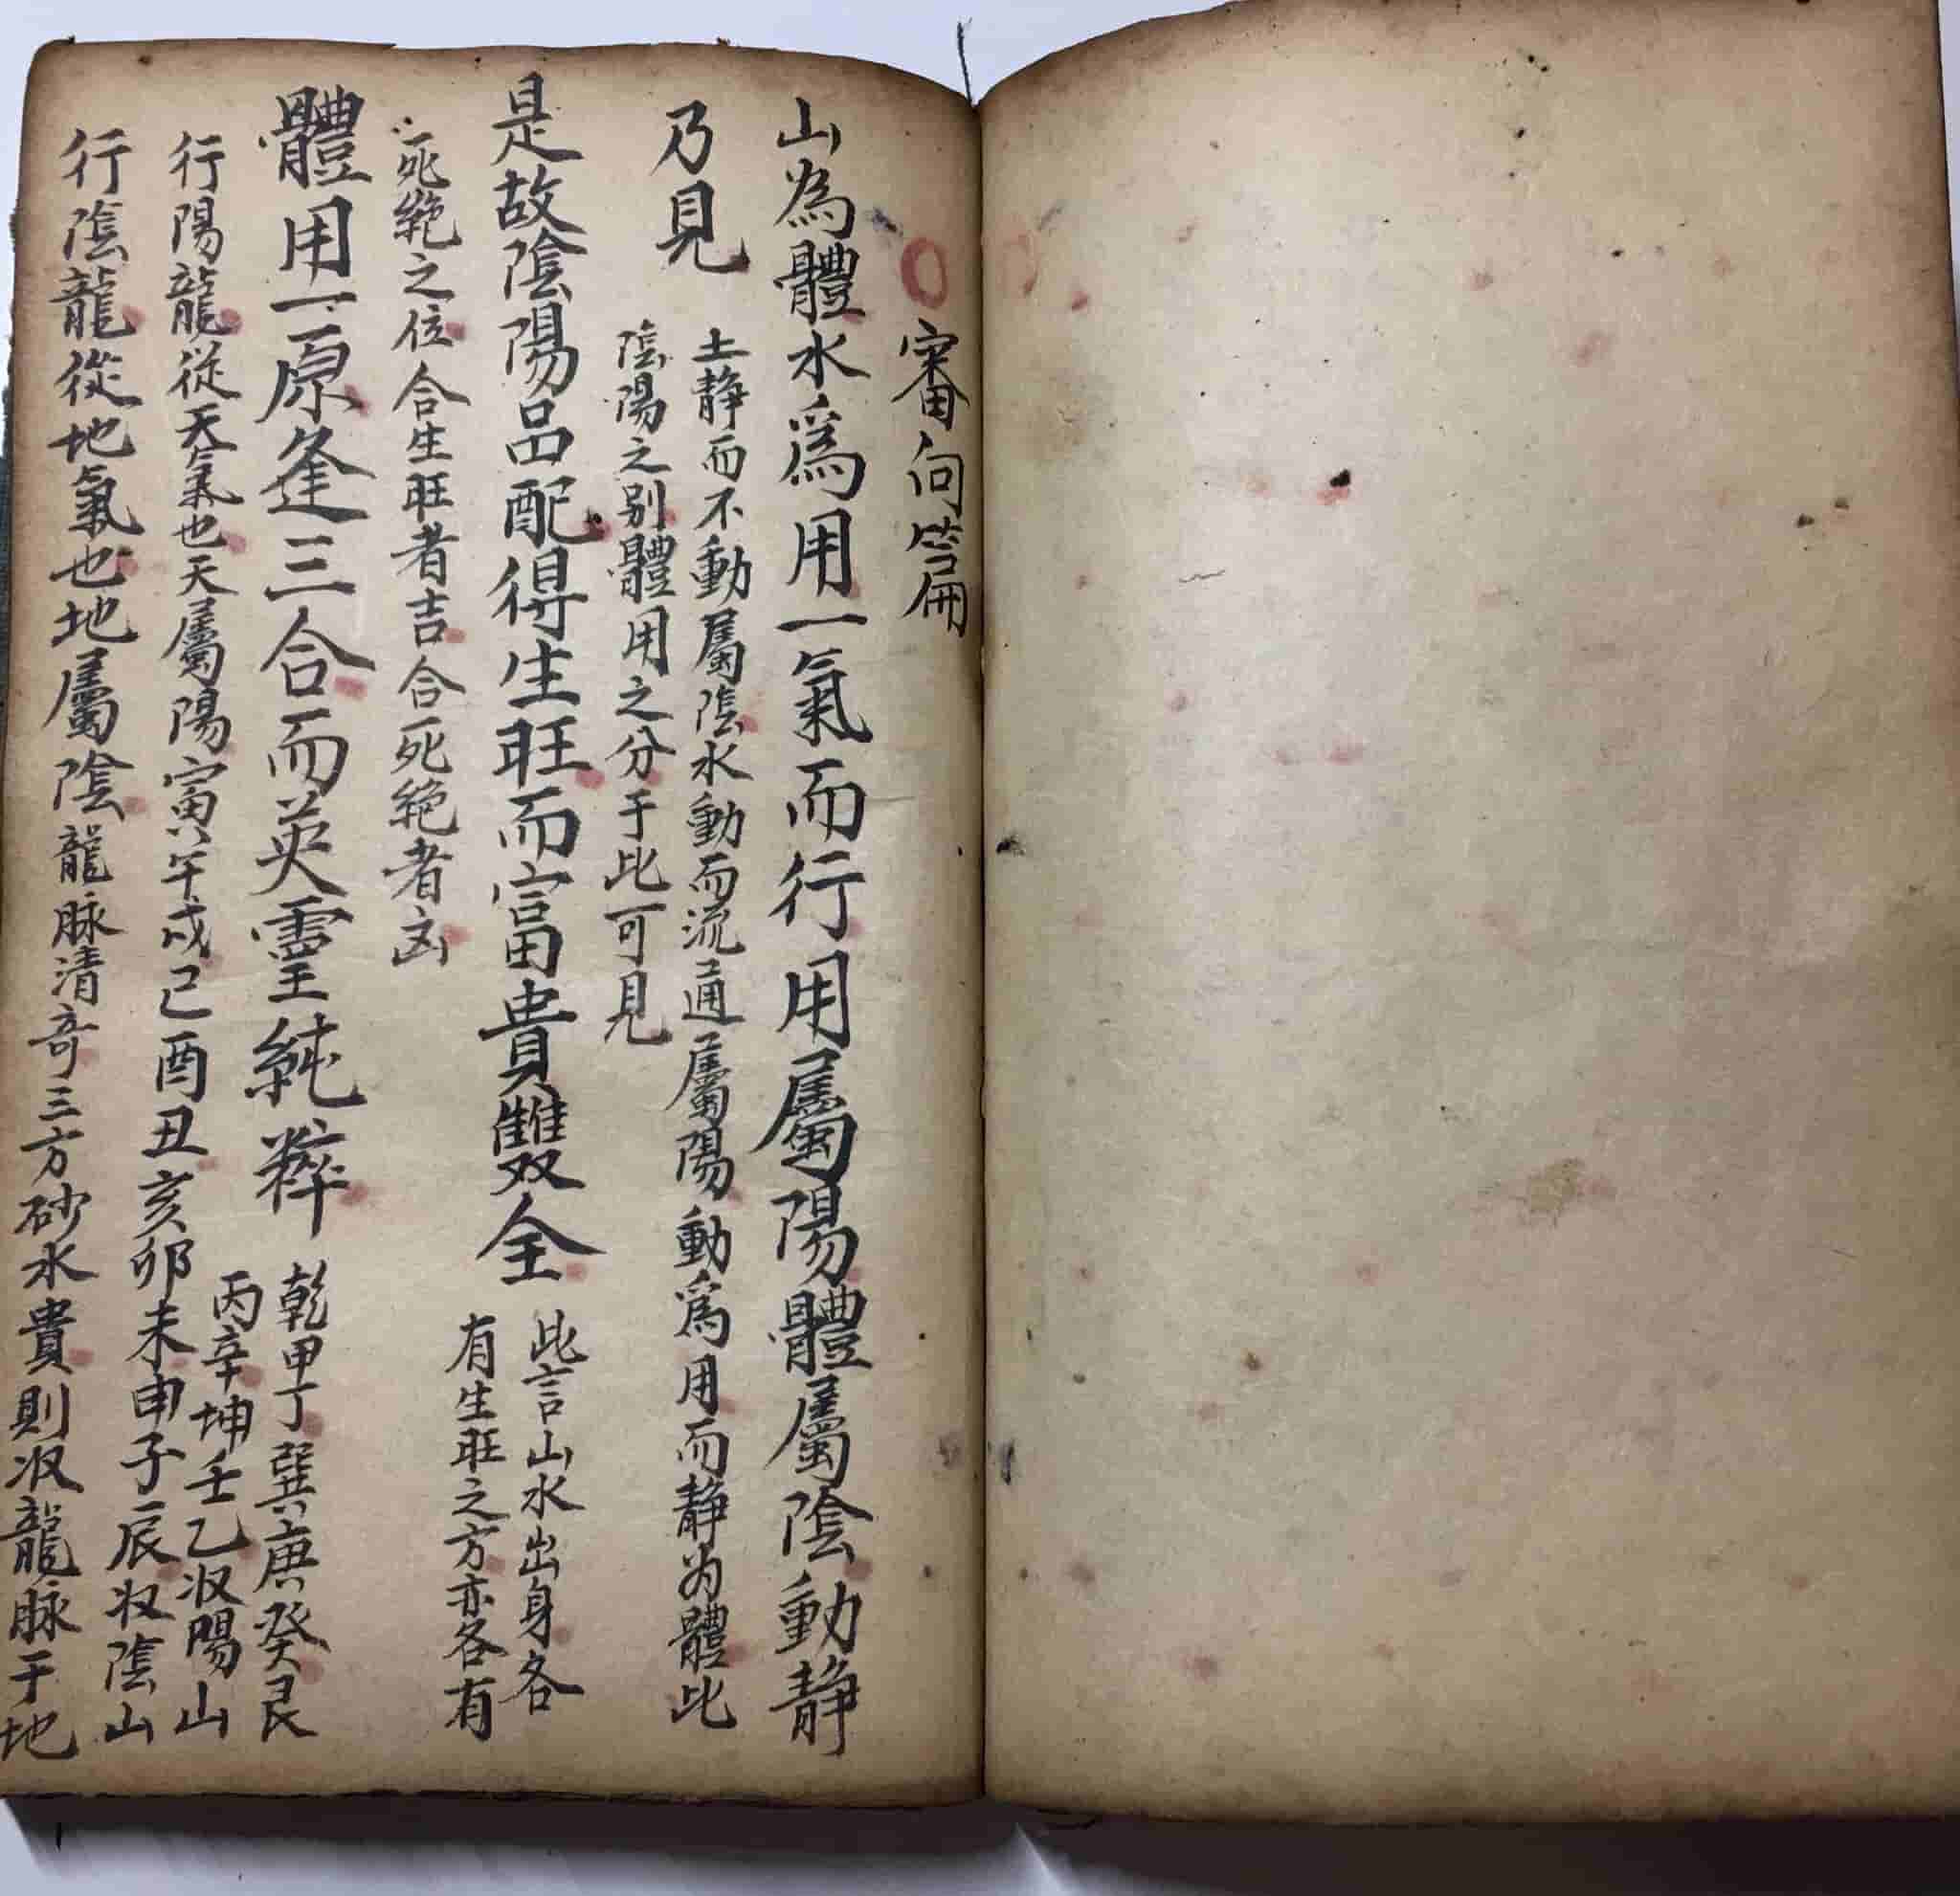 審向篇
山為體水爲用一氣而行用屬陽體屬陰動静
乃見
土静而不動屬陰水動而流通屬陽動爲用而静为體此
陰陽之别體用之分于此可見
是故陰陽品配得生旺而富貴雙全
此言山水出身各
有生旺之方亦各有
死絶之位合生旺者吉合死絶者凶
體用一原逢三合而英靈純粹
乾甲丁巽庚癸艮
丙辛坤壬乙收陽山
行陽龍從天氣也天屬陽寅午戌巳酉丑亥卯未申子辰收陰山
行陰龍從地氣也地屬陰龍脉清奇三方砂水貴則收龍脉于地